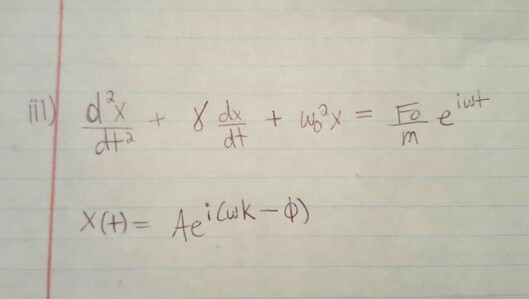 iii) d²x/dt² + γ dx/dt + ω₀²x = F₀/m e^{iωt}
x(t) = Ae^{i(ωk − ϕ)}